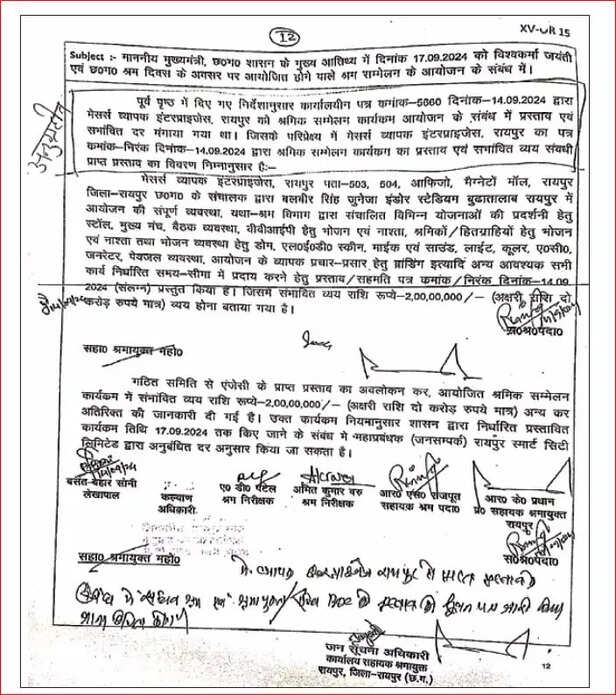 12
XV-CR 15
Subject :- माननीय मुख्यमंत्री, छ०ग० शासन के मुख्य आतिथ्य में दिनांक 17.09.2024 को विश्वकर्मा जयंती
एवं छ०ग० श्रम दिवस के अवसर पर आयोजित होने वाले श्रम सम्मेलन के आयोजन के संबंध में।
पूर्व पृष्ठ में दिए गए निर्देशानुसार कार्यालयीन पत्र कमाक-5660 दिनांक-14.09.2024 द्वारा
मेसर्स व्यापक इंटरप्राइजेस, रायपुर को श्रमिक सम्मेलन कार्यकम आयोजन के संबंध में प्रस्ताव एवं
संभावित दर मंगाया गया था। जिसके परिप्रेक्ष्य में मेसर्स व्यापक इंटरप्राइजेस, रायपुर का पत्र
कमांक-निरंक दिनांक-14.09.2024 द्वारा श्रमिक सम्मेलन कार्यकम का प्रस्ताव एवं संभावित व्यय संबधी
प्राप्त प्रस्ताव का विवरण निम्नानुसार है:-
मेसर्स व्यापक इंटरप्राइजेस, रायपुर पता-503, 504, आफिजो, मैग्नेटो मॉल, रायपुर
जिला-रायपुर छ०ग० के संचालक द्वारा बलबीर सिंह जुनेजा इंडोर स्टेडियम बुढातालाब रायपुर में
आयोजन की संपूर्ण व्यवस्था, यथा-श्रम विभाग द्वारा संचालित विभिन्न योजनाओं की प्रदर्शनी हेतु
स्टॉल, मुख्य मंच, बैठक व्यवस्था, वीवीआईपी हेतु भोजन एवं नाश्ता, श्रमिकों/हितग्राहियों हेतु भोजन
एवं नाश्ता तथा भोजन व्यवस्था हेतु डोम, एल०ई०डी० स्कीन, माईक एवं साउंड, लाईट, कूलर, ए०सी०,
जनरेटर, पेयजल व्यवस्था, आयोजन के व्यापक प्रचार-प्रसार हेतु ब्रांडिंग इत्यादि अन्य आवश्यक सभी
कार्य निर्धारित समय-सीमा में प्रदाय करने हेतु प्रस्ताव/सहमति पत्र कमांक/निरंक दिनांक-14.09.
2024 (संलग्न) प्रस्तुत किया है। जिसमें संभावित व्यय राशि रूप्ये-2,00,00,000/- (अक्षरी राशि दो
करोड़ रुपये मात्र) व्यय होना बताया गया है।
स०श्र०पदा०
सहा० श्रमायुक्त महो०
गठित समिति से एंजेसी के प्राप्त प्रस्ताव का अवलोकन कर, आयोजित श्रमिक सम्मेलन
कार्यकम में संभावित व्यय राशि रूप्ये-2,00,00,000/- (अक्षरी राशि दो करोड़ रुपये मात्र) अन्य कर
अतिरिक्त की जानकारी दी गई है। उक्त कार्यकम नियमानुसार शासन द्वारा निर्धारित प्रस्तावित
कार्यकम तिथि 17.09.2024 तक किए जाने के संबंध मे महाप्रबंधक (जनसम्पर्क) रायपुर स्मार्ट सिटी
लिमिटेड द्वारा अनुबंधित दर अनुसार किया जा सकता है।
बसंत बहार सोनी
लेखापाल
कल्याण
अधिकारी
ए० डी० पटेल
श्रम निरीक्षक
अमित कुमार
श्रम निरीक्षक
आर० एस० राजपूत
सहायक श्रम पदा०
आर० के० प्रधान
प्र० सहायक श्रमायुक्त
रायपुर
स०श्र०पदा०
सहा० श्रमायुक्त महो०
जन सूचना अधिकारी
कार्यालय सहायक श्रमायुक्त
रायपुर, जिला-रायपुर (छ.ग.)
12